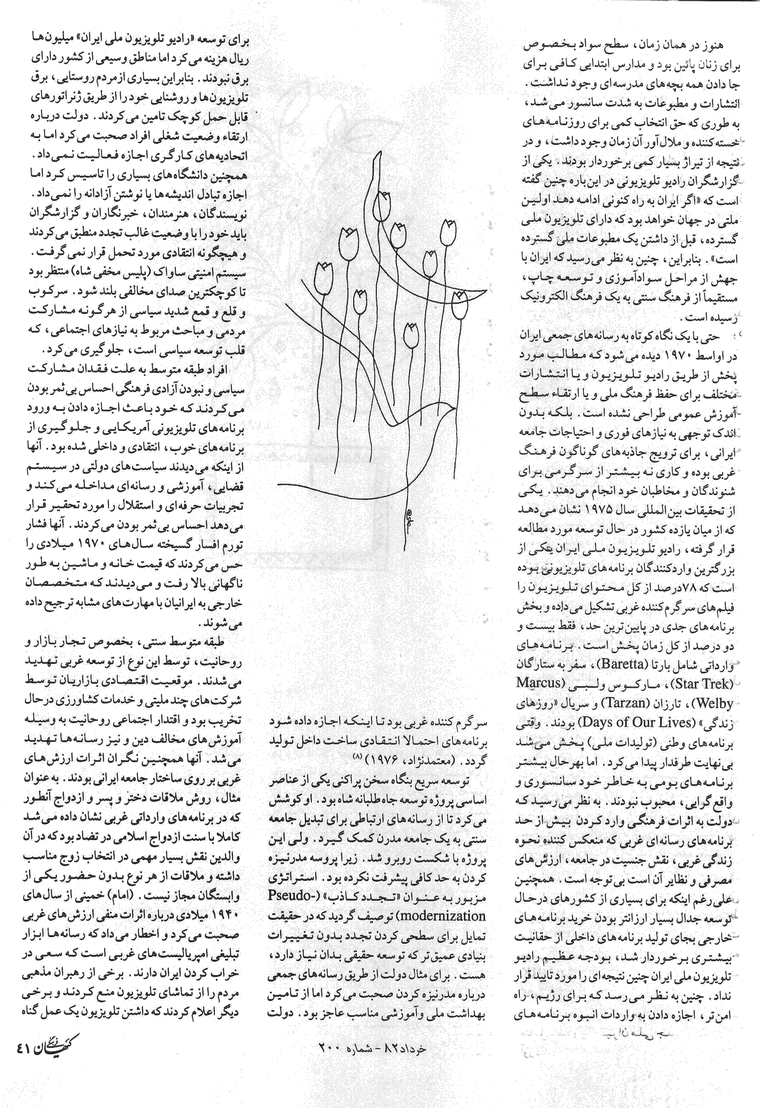 هنوز در همان زمان، سطح سواد بخصوص
برای زنان پائین بود و مدارس ابتدایی کافی برای
جا دادن همه بچه‌های مدرسه‌ای وجود نداشت.
انتشارات و مطبوعات به شدت سانسور می‌شد،
به طوری که حق انتخاب کمی برای روزنامه‌های
خسته‌کننده و ملال‌آور آن زمان وجود داشت، و در
نتیجه از تیراژ بسیار کمی برخوردار بودند. یکی از
گزارشگران رادیو تلویزیونی در این‌باره چنین گفته
است که «اگر ایران به راه کنونی ادامه دهد اولین
ملتی در جهان خواهد بود که دارای تلویزیون ملی
گسترده، قبل از داشتن یک مطبوعات ملی گسترده
است». بنابراین، چنین به نظر می‌رسید که ایران با
جهش از مراحل سوادآموزی و توسعه چاپ،
مستقیماً از فرهنگ سنتی به یک فرهنگ الکترونیک
رسیده است.
حتی با یک نگاه کوتاه به رسانه‌های جمعی ایران
در اواسط ۱۹۷۰ دیده می‌شود که مطالب مورد
پخش از طریق رادیو تلویزیون و یا انتشارات
مختلف برای حفظ فرهنگ ملی و یا ارتقاء سطح
آموزش عمومی طراحی نشده است. بلکه بدون
اندک توجهی به نیازهای فوری و احتیاجات جامعه
ایرانی، برای ترویج جاذبه‌های گوناگون فرهنگ
غربی بوده و کاری نه بیشتر از سرگرمی برای
شنوندگان و مخاطبان خود انجام می‌دهند. یکی
از تحقیقات بین‌المللی سال ۱۹۷۵ نشان می‌دهد
که از میان یازده کشور در حال توسعه مورد مطالعه
قرار گرفته، رادیو تلویزیون ملی ایران یکی از
بزرگترین واردکنندگان برنامه‌های تلویزیونی بوده
است که ۷۸درصد از کل محتوای تلویزیون را
فیلم‌های سرگرم کننده غربی تشکیل می‌داده و بخش
برنامه‌های جدی در پایین‌ترین حد، فقط بیست و
دو درصد از کل زمان پخش است. برنامه‌های
وارداتی شامل بارتا (Baretta)، سفر به ستارگان
(Star Trek)، مارکوس ولبی (Marcus
Welby)، تارزان (Tarzan) و سریال «روزهای
زندگی» (Days of Our Lives) بودند. وقتی
برنامه‌های وطنی (تولیدات ملی) پخش می‌شد
بی‌نهایت طرفدار پیدا می‌کرد. اما بهرحال بیشتر
برنامه‌های بومی به خاطر خود سانسوری و
واقع‌گرایی، محبوب نبودند. به نظر می‌رسید که
دولت به اثرات فرهنگی وارد کردن بیش از حد
برنامه‌های رسانه‌ای غربی که منعکس کننده نحوه
زندگی غربی، نقش جنسیت در جامعه، ارزش‌های
مصرفی و نظایر آن است بی‌توجه است. همچنین
علی‌رغم اینکه برای بسیاری از کشورهای درحال
توسعه جدال بسیار ارزانتر بودن خرید برنامه‌های
خارجی بجای تولید برنامه‌های داخلی از حقانیت
بیشتری برخوردار شد، بودجه عظیم رادیو
تلویزیون ملی ایران چنین نتیجه‌ای را مورد تایید قرار
نداد. چنین به نظر می‌رسد که برای رژیم، راه
امن‌تر، اجازه دادن به واردات انبوه برنامه‌های
سرگرم کننده غربی بود تا اینکه اجازه داده شود
برنامه‌های احتمالا انتقادی ساخت داخل تولید
گردد. (معتمدنژاد، ۱۹۷۶) (۸)
توسعه سریع بنگاه سخن پراکنی یکی از عناصر
اساسی پروژه توسعه جاه‌طلبانه شاه بود. او کوشش
می‌کرد تا از رسانه‌های ارتباطی برای تبدیل جامعه
سنتی به یک جامعه مدرن کمک گیرد. ولی این
پروژه با شکست روبرو شد. زیرا پروسه مدرنیزه
کردن به حد کافی پیشرفت نکرده بود. استراتژی
مزبور به عنوان «تجدد کاذب» (Pseudo-
modernization) توصیف گردید که در حقیقت
تمایل برای سطحی کردن تجدد بدون تغییرات
بنیادی عمیق‌تر که توسعه حقیقی بدان نیاز دارد،
هست. برای مثال دولت از طریق رسانه‌های جمعی
درباره مدرنیزه کردن صحبت می‌کرد اما از تامین
بهداشت ملی وآموزشی مناسب عاجز بود. دولت
برای توسعه «رادیو تلویزیون ملی ایران» میلیون‌ها
ریال هزینه می‌کرد اما مناطق وسیعی از کشور دارای
برق نبودند. بنابراین بسیاری از مردم روستایی، برق
تلویزیون‌ها و روشنایی خود را از طریق ژنراتورهای
قابل حمل کوچک تامین می‌کردند. دولت درباره
ارتقاء وضعیت شغلی افراد صحبت می‌کرد اما به
اتحادیه‌های کارگری اجازه فعالیت نمی‌داد.
همچنین دانشگاه‌های بسیاری را تاسیس کرد اما
اجازه تبادل اندیشه‌ها یا نوشتن آزادانه را نمی‌داد.
نویسندگان، هنرمندان، خبرنگاران و گزارشگران
باید خود را با وضعیت غالب تجدد منطبق می‌کردند
و هیچگونه انتقادی مورد تحمل قرار نمی‌گرفت.
سیستم امنیتی ساواک (پلیس مخفی شاه) منتظر بود
تا کوچکترین صدای مخالفی بلند شود. سرکوب
و قلع و قمع شدید سیاسی از هرگونه مشارکت
مردمی و مباحث مربوط به نیازهای اجتماعی، که
قلب توسعه سیاسی است، جلوگیری می‌کرد.
افراد طبقه متوسط به علت فقدان مشارکت
سیاسی و نبودن آزادی فرهنگی احساس بی‌ثمر بودن
می‌کردند که خود باعث اجازه دادن به ورود
برنامه‌های تلویزیونی آمریکایی و جلوگیری از
برنامه‌های خوب، انتقادی و داخلی شده بود. آنها
از اینکه می‌دیدند سیاست‌های دولتی در سیستم
قضایی، آموزشی و رسانه‌ای مداخله می‌کند و
تجربیات حرفه‌ای و استقلال را مورد تحقیر قرار
می‌دهد احساس بی‌ثمر بودن می‌کردند. آنها فشار
تورم افسار گسیخته سال‌های ۱۹۷۰ میلادی را
حس می‌کردند که قیمت خانه و ماشین به طور
ناگهانی بالا رفت و می‌دیدند که متخصصان
خارجی به ایرانیان با مهارت‌های مشابه ترجیح داده
می‌شوند.
طبقه متوسط سنتی، بخصوص تجار بازار و
روحانیت، توسط این نوع از توسعه غربی تهدید
می‌شدند. موقعیت اقتصادی بازاریان توسط
شرکت‌های چند ملیتی و خدمات کشاورزی درحال
تخریب بود و اقتدار اجتماعی روحانیت به وسیله
آموزش‌های مخالف دین و نیز رسانه‌ها تهدید
می‌شد. آنها همچنین نگران اثرات ارزش‌های
غربی بر روی ساختار جامعه ایرانی بودند. به عنوان
مثال، روش ملاقات دختر و پسر و ازدواج آنطور
که در برنامه‌های وارداتی غربی نشان داده می‌شد
کاملا با سنت ازدواج اسلامی در تضاد بود که در آن
والدین نقش بسیار مهمی در انتخاب زوج مناسب
داشته و ملاقات از هر نوع بدون حضور یکی از
وابستگان مجاز نیست. (امام) خمینی از سال‌های
۱۹۴۰ میلادی درباره اثرات منفی ارزش‌های غربی
صحبت می‌کرد و اخطار می‌داد که رسانه‌ها ابزار
تبلیغی امپریالیست‌های غربی است که سعی در
خراب کردن ایران دارند. برخی از رهبران مذهبی
مردم را از تماشای تلویزیون منع کردند و برخی
دیگر اعلام کردند که داشتن تلویزیون یک عمل گناه
خرداد ۸۲ - شماره ۲۰۰
کیهان فرهنگی ۴۱